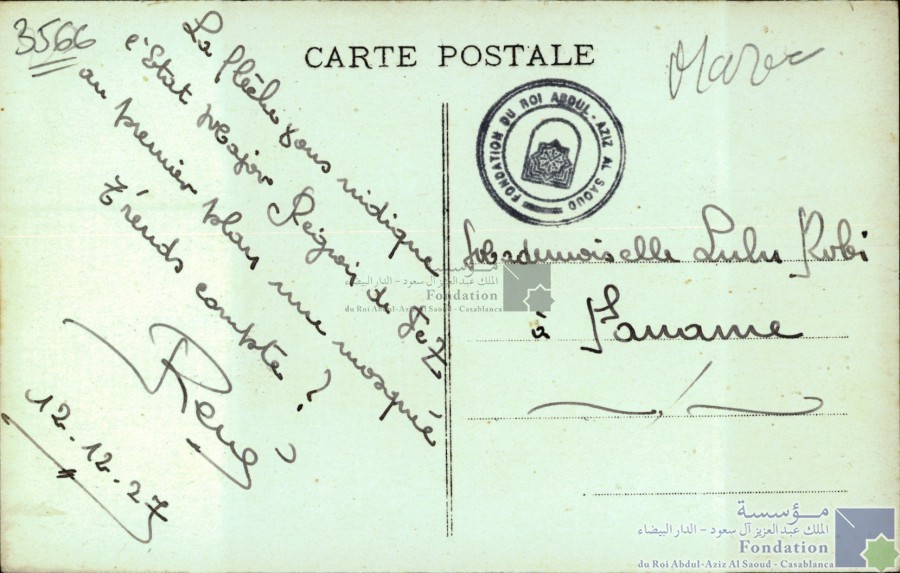 3566
CARTE POSTALE
Maroc
La flèche vous indique
l'Etat Major Région de Fez
au premier plan une mosquée
t'rends compte ?
René
12.12.27
FONDATION DU ROI ABDUL-AZIZ AL SAOUD
Mademoiselle Lulu Robi
à Paname
مؤسسة
الملك عبد العزيز آل سعود - الدار البيضاء
Fondation
du Roi Abdul-Aziz Al Saoud - Casablanca
مؤسسة
الملك عبد العزيز آل سعود - الدار البيضاء
Fondation
du Roi Abdul-Aziz Al Saoud - Casablanca